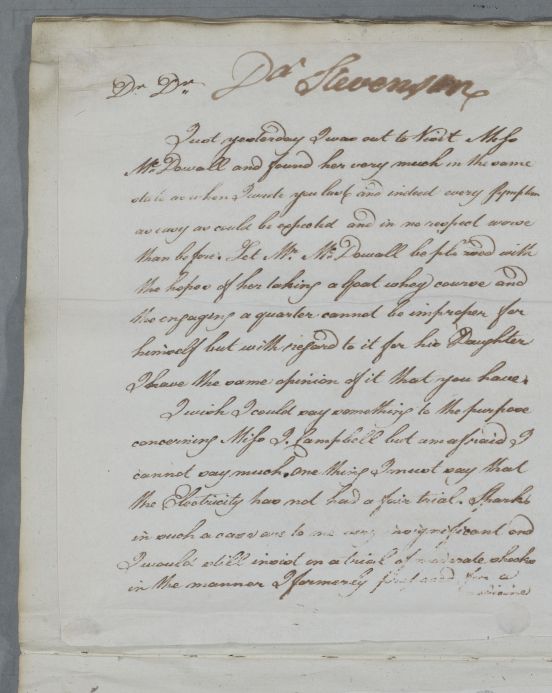 Dr. Dr. Dr. Stevenson
Just yesterday I was out to Visit Miss
Mc.Dowall and found her very much in the same
state as when I wrote you last and indeed every Symptom
as easy as could be expected and in no respect worse
than before. Let Mr. Mc.Dowall be pleased with
the hopes of her taking a Goat whey course and
the engaging a quarter cannot be improper for
himself but with regard to it for his Daughter
I have the same opinion of it that you have.
I wish I could say something to the purpose
concerning Miss J. Campbell but am afraid I
cannot say much. One thing I must say that
the Electricity has not had a fair trial. Sparks
in such a case are to me very insignificant and
I would still insist on a trial of moderate shocks
in the manner I formerly proposed, for a